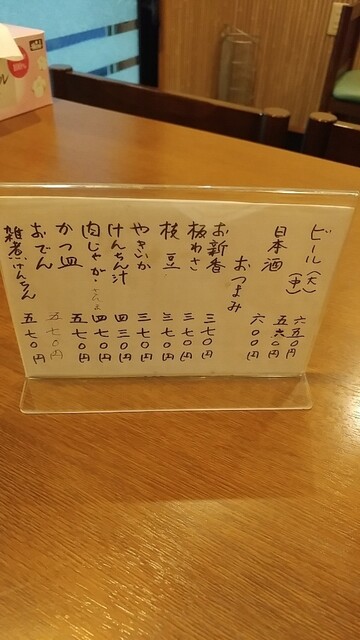 ビール(大) 六五〇円
(中) 五六〇円
日本酒 六〇〇円
おつまみ
お新香 三七〇円
板わさ 三七〇円
枝豆 三七〇円
やきいか 三七〇円
けんちん汁 四三〇円
肉じゃが 四七〇円
かつ皿 五七〇円
おでん 五七〇円
雑煮けんちん 五七〇円